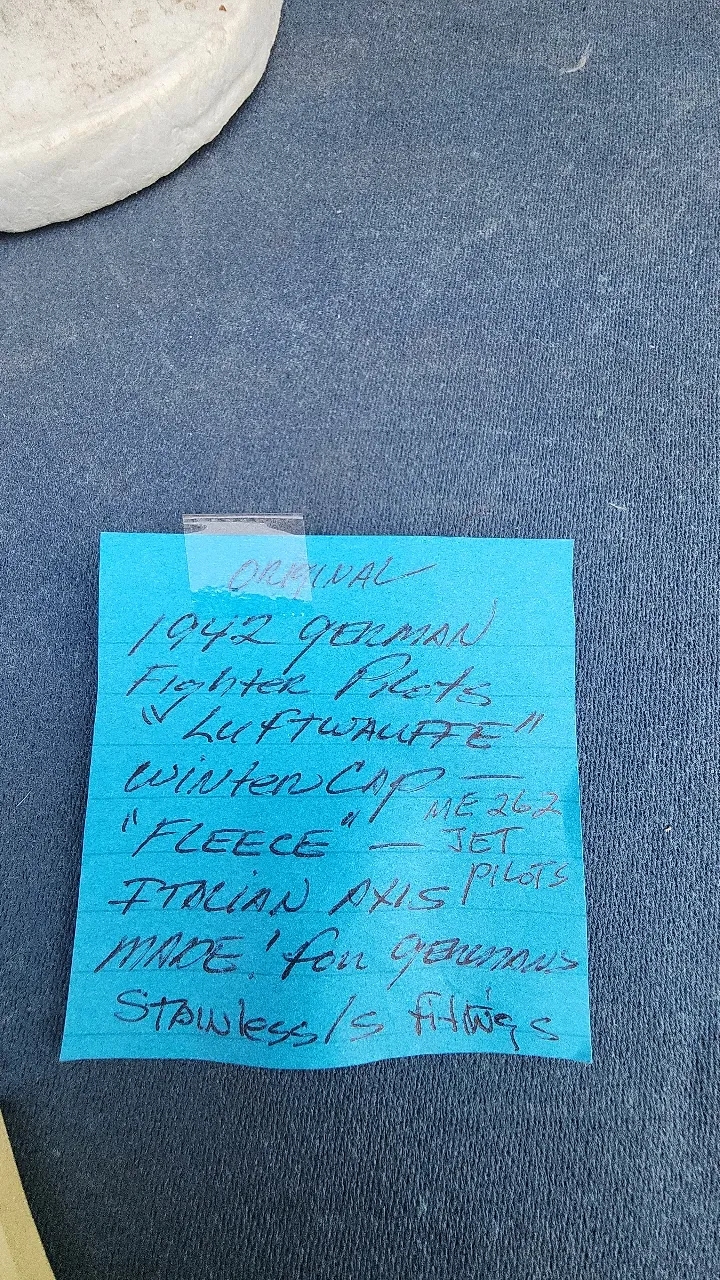 ORIGINAL
1942 GERMAN
Fighter Pilots
"LUFTWAUFFE"
WINTER CAP —
"FLEECE" — ME 262
JET
PILOTS
ITALIAN AXIS
MADE! for GERMANS
STAINless/s fittings